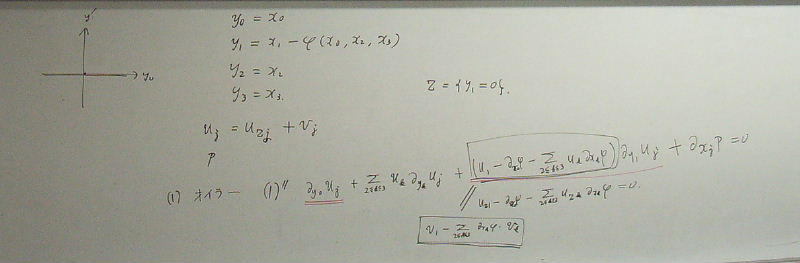 y₁
y₀
y₀ = x₀
y₁ = x₁ − φ(x₀, x₂, x₃)
y₂ = x₂
y₃ = x₃.
Z = {y₁ = 0}.
u_j = u_{Zj} + v_j
p
(1) オイラー (1)″ ∂_{y₀}u_j + Σ_{2≤k≤3} u_k ∂_{y_k} u_j + (u₁ − ∂_{x₀}φ − Σ_{2≤k≤3} u_k ∂_{x_k}φ) ∂_{y₁}u_j + ∂_{x_j}p = 0
∥ u_{Z1} − ∂_{x₀}φ − Σ_{2≤k≤3} u_{Zk} ∂_{x_k}φ = 0.
v₁ − Σ_{2≤k≤3} ∂_{x_k}φ · v_k